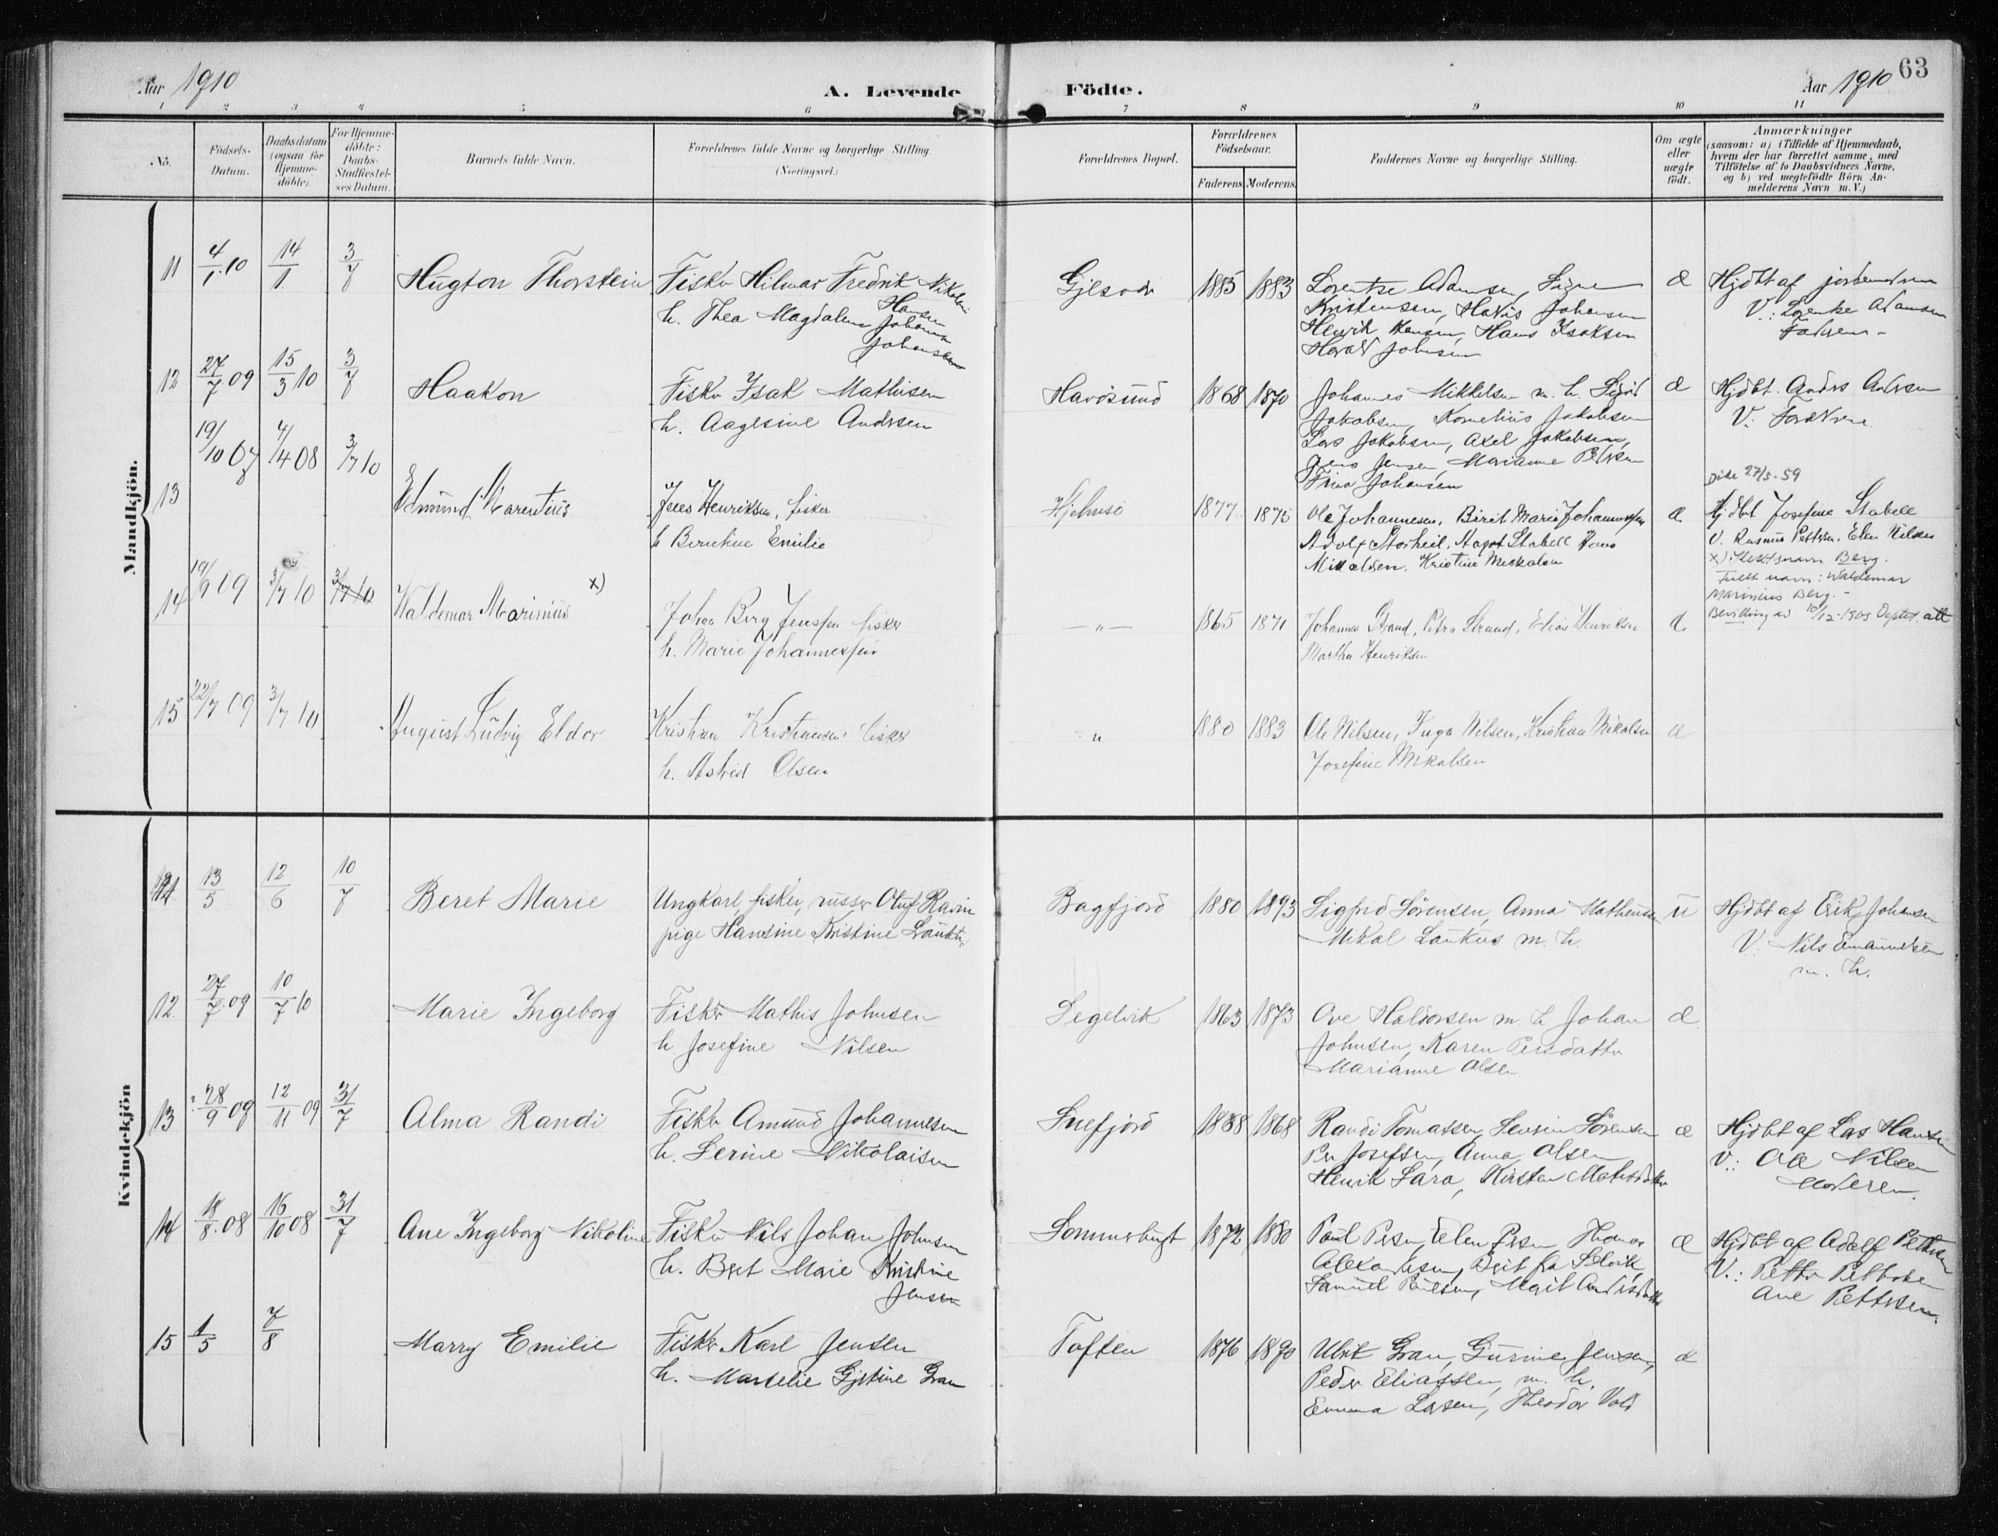 Aar 1910
A. Levende
Födte.
Aar 1910
63
1 2 3 4 5 6 7 8 9 10 11
No.
Födsels-
Datum.
Daabsdatum
(ogsaa for
Hjemme-
döbte)
For Hjemme-
döbte:
Daabs-
Stadfæstel-
ses Datum.
Barnets fulde Navn.
Forældrenes fulde Navne og borgerlige Stilling.
(Næringsvei.)
Forældrenes Bopæl.
Forældrenes
Födselsaar.
Faderens. Moderens.
Faddernes Navne og borgerlige Stilling.
Om ægte
eller
uægte
födt.
Anmærkninger
(saasom: a) i Tilfælde af Hjemmedaab,
hvem der har forrettet samme, med
Tilföielse af to Daabsvidners Navne,
og b) ved uægtefödte Börn An-
melderens Navn m. V.)
Mandkjön.
11 4/1 10 14/1 3/7 Hugton Thorstein Fisker Hilmar Fredrik Nikolai Hansen
h. Thea Magdalene Johanne Johansen
1885 1883 Lorentse Adamsen, Signe
Kristensen, Hans Johansen
Henrik Hansen, Hans Isaksen
Harald Johnsen
æ
Hjdbt af jordemoderen
V: Lorentse Adamsen
Faderen
12 27/7 09 15/3 10 3/7 Haakon Fisker Isak Mathisen
h. Aagesine Andersen
Havösund 1868 1870 Johannes Mikkelsen m. h. Sigrid
Jakobsen, Kornelius Jakobsen
Lars Jakobsen, Axel Jakobsen,
Jens Jensen, Marianne Petersen
Trina Johansen
æ
Hjdbt. Anders Andersen
V: Foreldrene
13 19/10 07 4/4 08 3/7 10 Edmund Marentius Jens Henriksen, fisker
h Berntine Emilie
Hjelmsö 1877 1875 Ole Johannesen, Birit Marie Johannessen
Adolf Storheil, Aagot Stabell Hans
Mikalsen, Kristine Mikalsen
æ
Død 27/5-59
Hjdbt Josefine Stabell
V. Rasmus Petersen, Elen Nilsen
14 19/9 09 3/7 10 3/7 10 Waldemar Marinius x) Johan Berg Jenssen fisker
h. Marie Johannessen
— " — 1865 1871 Johannes Strand, Petra Strand, Elias Henriksen
Martha Henriksen
æ
x) Slektsnavn Berg.
Fullt navn: Waldemar
Marinius Berg. -
Bevilling av 10/12-1903
15 22/7 09 3/7 10 August Ludvig Eldor Kristian Kristiansen fisker
h. Astrid Olsen
" 1880 1883 Ole Nilsen, Inga Nilsen, Kristian Mikalsen
Josefine Mikalsen
æ
Kvindekjön
11 13/5 12/6 10/7 Beret Marie Ungkarl fisker, russer Oluf Ravin
pige Hansine Kristine
Bagfjord 1880 1893 Sigfrid Sörensen, Anna Mathisen
Mikal Laukus m. h.
u
Hjdbt af Erik Johansen
V: Nils Emanuelsen
m. h.
12 27/7 09 10/7 10 Marie Ingeborg Fisker Mathis Johnsen
h Josefine Nilsen
Segelvik 1863 1873 Ove Haldorsen m. h Johan
Johnsen, Karen Persdatter
Marianne Olsen
æ
13 28/9 09 12/11 09 31/7 Alma Randi Fisker Amund Johannesen
h. Serine Nikolaisen
Snefjord 1858 1868 Randi Tomassen, Sörensen
Per Josefsen, Anna Olsen
Henrik Sara, Kirsten Mathisdatter
æ
Hjdbt af Lars Hansen
V: Ole Nilsen
Moderen.
14 18/8 08 16/10 08 31/7 Ane Ingeborg Nikoline Fisker Nils Johan Johnsen
h. Beret Marie Kristine
Jensen
Sommerbugt 1872 1880 Paul Persen, Elen Persen Thomas
Alexandersen, Berit fra
Samuel Paulsen, Marit Andersdatter
æ
Hjdbt af Adolf Pettersen
V.: Petter Pettersen
Ane Pettersen.
15 1/5 7/8 Marry Emilie Fisker Karl Jensen
h. Marselie Gjetine Gran
Toften 1876 1890 Ulrik Gran, Gurine Jensen,
Peder Eliassen, m. h.
Emma Larsen, Theodor Vold
æ